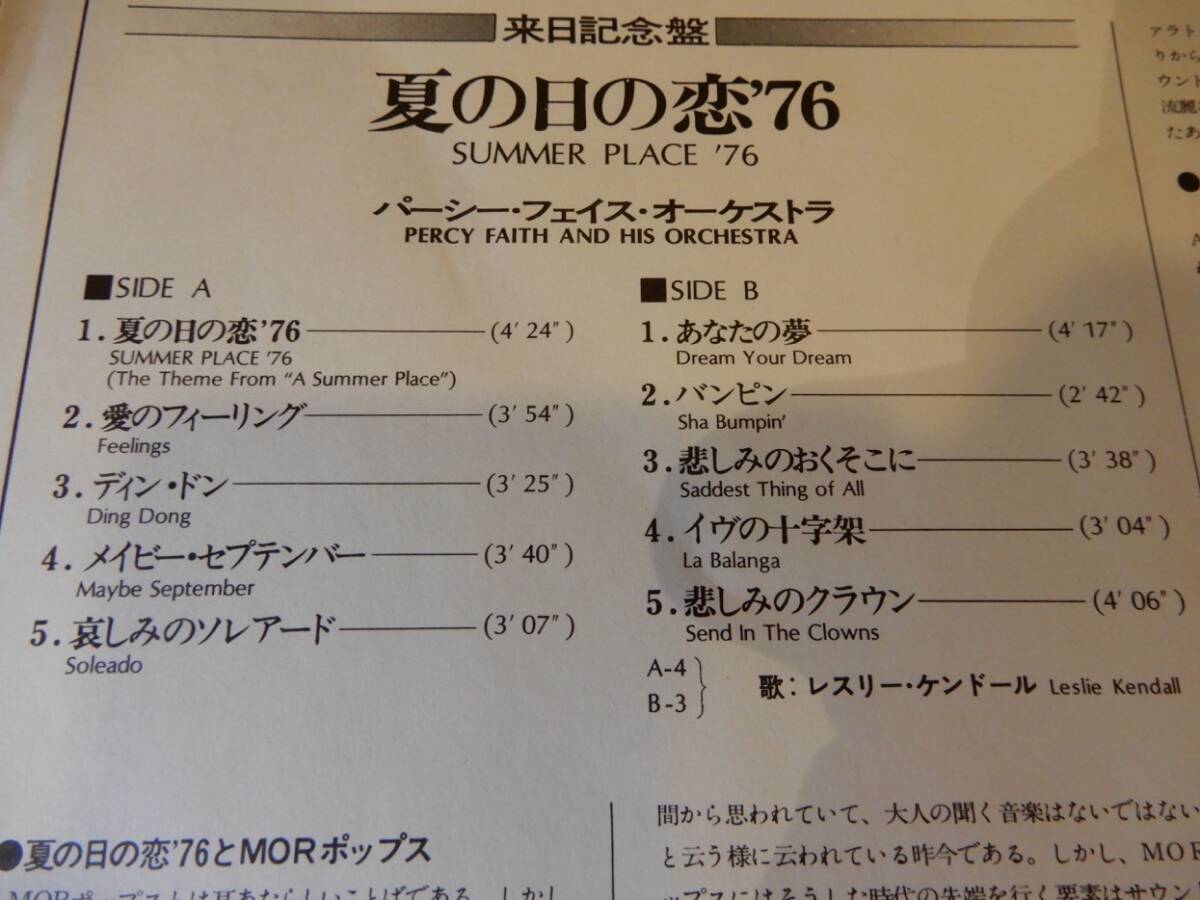 来日記念盤
夏の日の恋'76
SUMMER PLACE '76
パーシー・フェイス・オーケストラ
PERCY FAITH AND HIS ORCHESTRA
■SIDE A
1.夏の日の恋'76 (4'24")
SUMMER PLACE '76
(The Theme From "A Summer Place")
2.愛のフィーリング (3'54")
Feelings
3.ディン・ドン (3'25")
Ding Dong
4.メイビー・セプテンバー (3'40")
Maybe September
5.哀しみのソレアード (3'07")
Soleado
■SIDE B
1.あなたの夢 (4'17")
Dream Your Dream
2.バンピン (2'42")
Sha Bumpin'
3.悲しみのおくそこに (3'38")
Saddest Thing of All
4.イヴの十字架 (3'04")
La Balanga
5.悲しみのクラウン (4'06")
Send In The Clowns
A-4
B-3
歌:レスリー・ケンドール Leslie Kendall
●夏の日の恋'76とMORポップス
MORポップストは耳あたらしいことばである。しかし
間から思われていて、大人の聞く音楽はないではない
と云う様に云われている昨今である。しかし、MOR
ップスにはそうした時代の先端を行く要素はサウン
アラト
りから
ウント
流麗
たあ